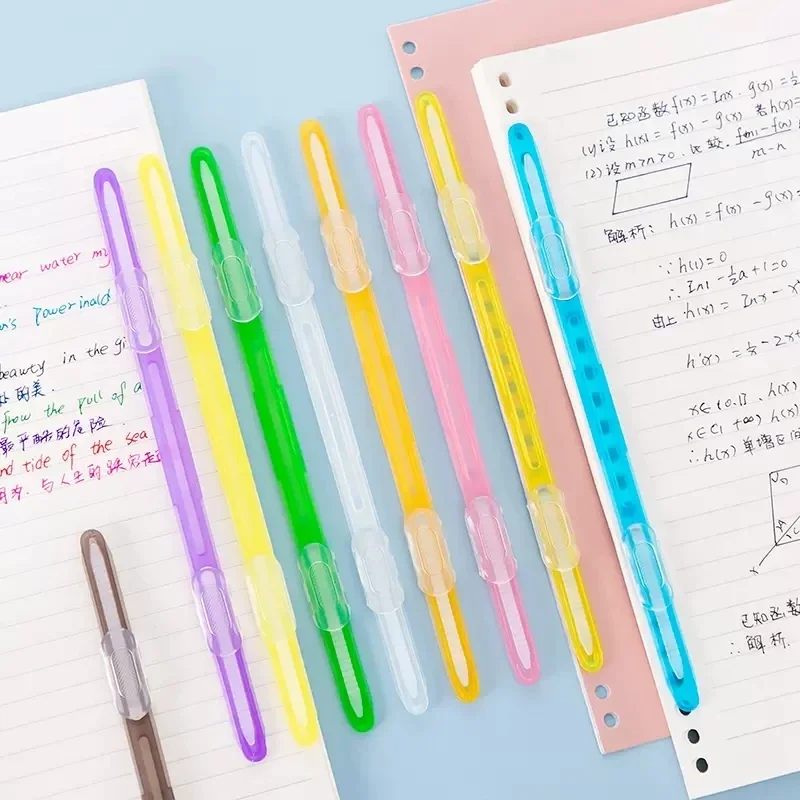 near water my
n's powerinald
beauty in the gi
处的美.
from the pull of a
nd tide of the sea
已知函数f(x)=lnx. g(x)=½
(1)设 h(x)= f(x) - g(x) 若h(x)=
(2)设 m>n>0. 比较.
f(m)-f(n)
m-n
解析: h(x)=f(x) - g(x)=
∵h(1)=0
∴ ln1 -½a+1=0
由上 h(x)= lnx-x
h'(x) = ½-2x
x∈(0.1). h(x)
x∈(1 +∞) h(x)
∴h(x) 单增区间
x
已知函数
∴解析.